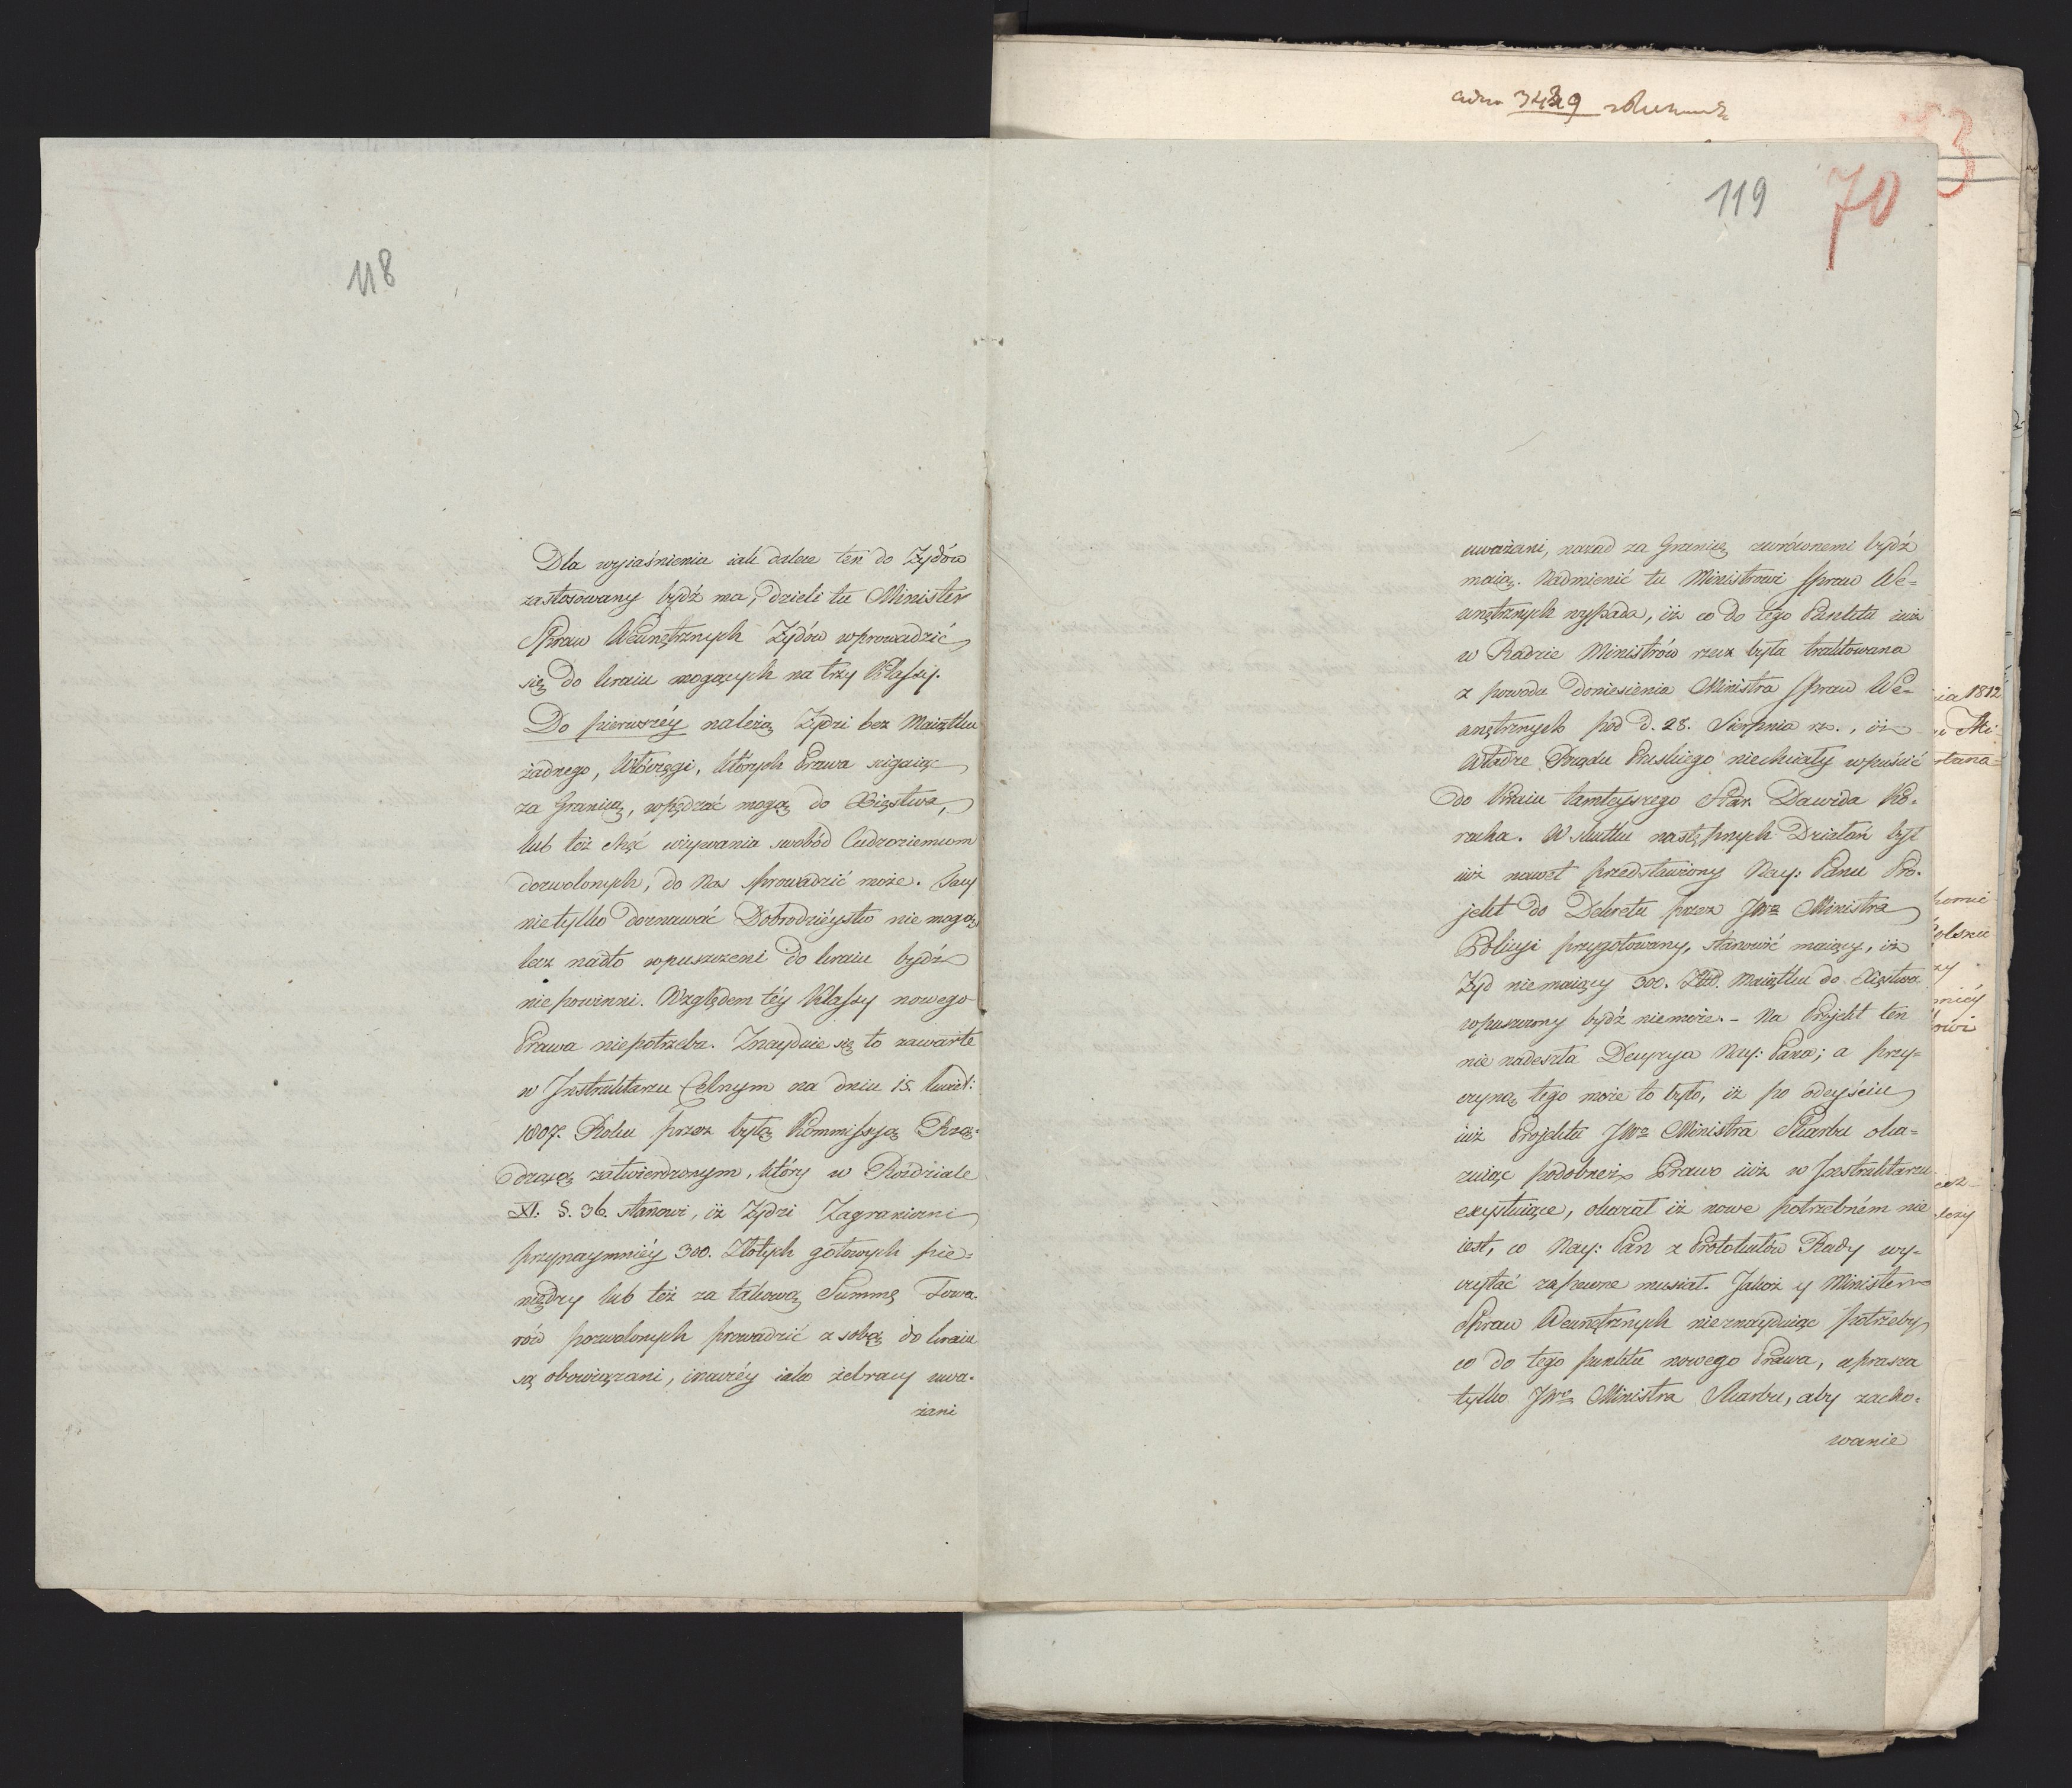 118
Dla wyiaśnienia iak dalece ten do Żydów
zastosowany bydź ma, dzieli tu Minister
Spraw Wewnętrznych Żydów wprowadzić
się do kraiu mogących na trzy Klassy.
Do pierwszéy należą Żydzi bez Maiątku
żadnego, Włóczęgi, których Prawa scigaiąc
za Granicą, wpędzać mogą do Xięstwa,
lub też chęć używania swobód Cudzoziemcom
dozwolonych, do Nas sprowadzić może. Tacy
nietylko doznawać Dobrodzieystw nie mogą,
lecz nadto wpuszczeni do kraiu bydź
niepowinni. Względem téy Klassy nowego
Prawa niepotrzeba. Znayduie się to zawarte
w Instruktarzu Celnym na dniu 15. kwiet:
1807. Roku przez byłą Kommissyą Rzą-
dzącą zatwierdzonym, który w Rozdziale
XI. §. 36. stanowi, iż Żydzi Zagraniczni
przynaymniéy 300. Złotych gotowych pie-
niędzy lub też za takową Summę Towa-
rów pozwolonych prowadzić z sobą do kraiu
są obowiązani, inaczéy iako żebracy uwa-
żani
3429
73
119
70
uważani, nazad za Granicę zwróconemi bydź
maią. Nadmienić tu Ministrowi Spraw We-
wnętrznych wypada, iż co do tego Punktu iuż
w Radzie Ministrów rzecz była traktowana
z powodu doniesienia Ministra Spraw We-
wnętrznych pod d. 28. Sierpnia rz., iż
Władze Rządu Pruskiego niechciały wpuścić
do Kraiu tamteyszego Star. Dawida Ko-
racha. W skutku następnych Działań był
iuż nawet przedstawiony Nay: Panu Pro-
jekt do Dekretu przez JWo Ministra
Policyi przygotowany, stanowić maiący, iż
Żyd niemaiący 300. Złł. Maiątku do Xięstwa
wpuszczony bydź niemoże. - Na Projekt ten
nie nadeszła Decyzya Nay: Pana; a przy-
czyną tego może to było, iż po odeyściu
iuż Projektu JWo Ministra Skarbu oka-
zuiąc podobneż Prawo iuż w Instruktarzu
exystuiące, okazał iż nowe potrzebném nie
iest, co Nay: Pan z Protokułów Rady wy-
czytać zapewne musiał. Jakoż y Minister
Spraw Wewnętrznych nieznayduiąc potrzeby
co do tego punktu nowego Prawa, uprasza
tylko JWo Ministra Skarbu, aby zacho-
wanie
1812